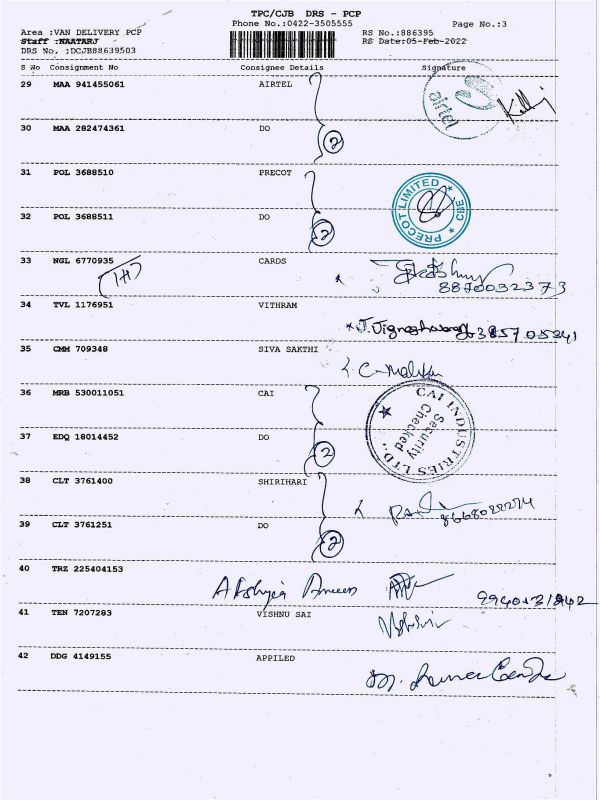 TPC/CJB DRS - PCP
Phone No.:0422-3505555 Page No.:3
Area :VAN DELIVERY PCP RS No.:886395
Staff :NAATARJ RS Date:05-Feb-2022
DRS No. :DCJB88639503
S No Consignment No Consignee Details Signature
29 MAA 941455061 AIRTEL
airtel
30 MAA 282474361 DO
2
31 POL 3688510 PRECOT
PRECOT LIMITED CBE
32 POL 3688511 DO
2
33 NGL 6770935 CARDS
8870032373
34 TVL 1176951 VITHRAM
35 CMM 709348 SIVA SAKTHI
36 MRB 530011051 CAI
CAI INDUSTRIES LTD.,
Security
Checked
37 EDQ 18014452 DO
2
38 CLT 3761400 SHIRIHARI
39 CLT 3761251 DO
2
40 TRZ 225404153
41 TEN 7207283 VISHNU SAI
42 DDG 4149155 APPILED